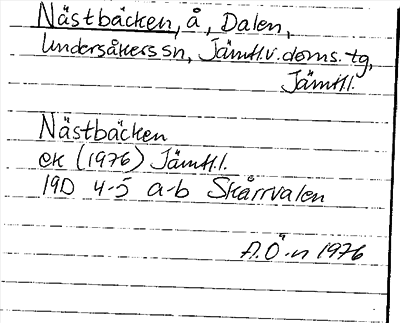 Nästbäcken, å, Dalen,
Undersåkers sn, Jämtl.v.doms.tg,
Jämtl.
Nästbäcken
ek (1976) Jämtl.
19D 4-5 a-b Skårrvalen
A.Ö-n 1976